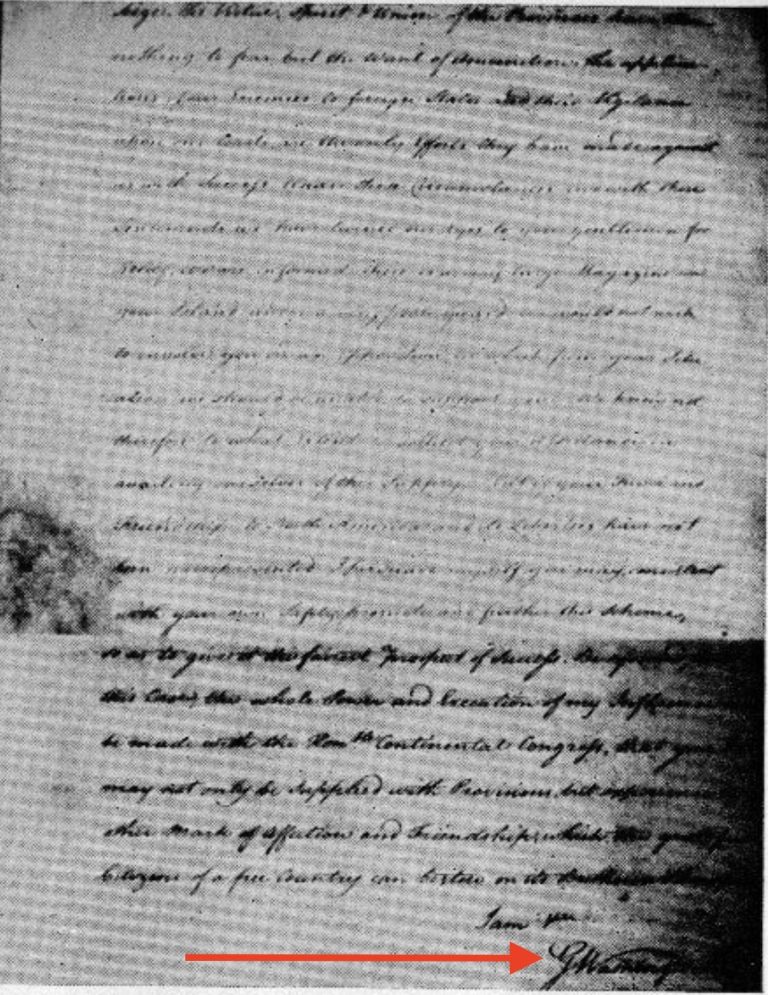 the Virtue, Spirit & Union of the Provinces leave them
nothing to fear but the Want of Ammunition. The applica
tions of our Enemies to foreign States and their Vigilance
upon our Coasts are the only Efforts they have made against
us with Success. Under these Circumstances and with these
Sentiments we have turned our Eyes to you Gentlemen for
Relief, we are informed there is a very large Magazine in
your Island under a very feeble guard we would not wish
to involve you in an Opposition in which from your Situ
ation we should be unable to support you. We know not
therefore to what Extent to sollicit your Assistance in
availing ourselves of this Supply. But if your Favor and
Friendship to North America and its Liberties have not
been misrepresented I persuade myself you may, consistent
with your own Safety, promote and further this Scheme,
so as to give it the fairest Prospect of Success. Be assured,
this Case, the whole Power and Execution of my Influence
be made with the Honble Continental Congress, that you
may not only be supplied with Provisions but experience
other Mark of Affection and Friendship, which the grateful
Citizens of a free Country can bestow on its Brethren
I am &c
G Washing